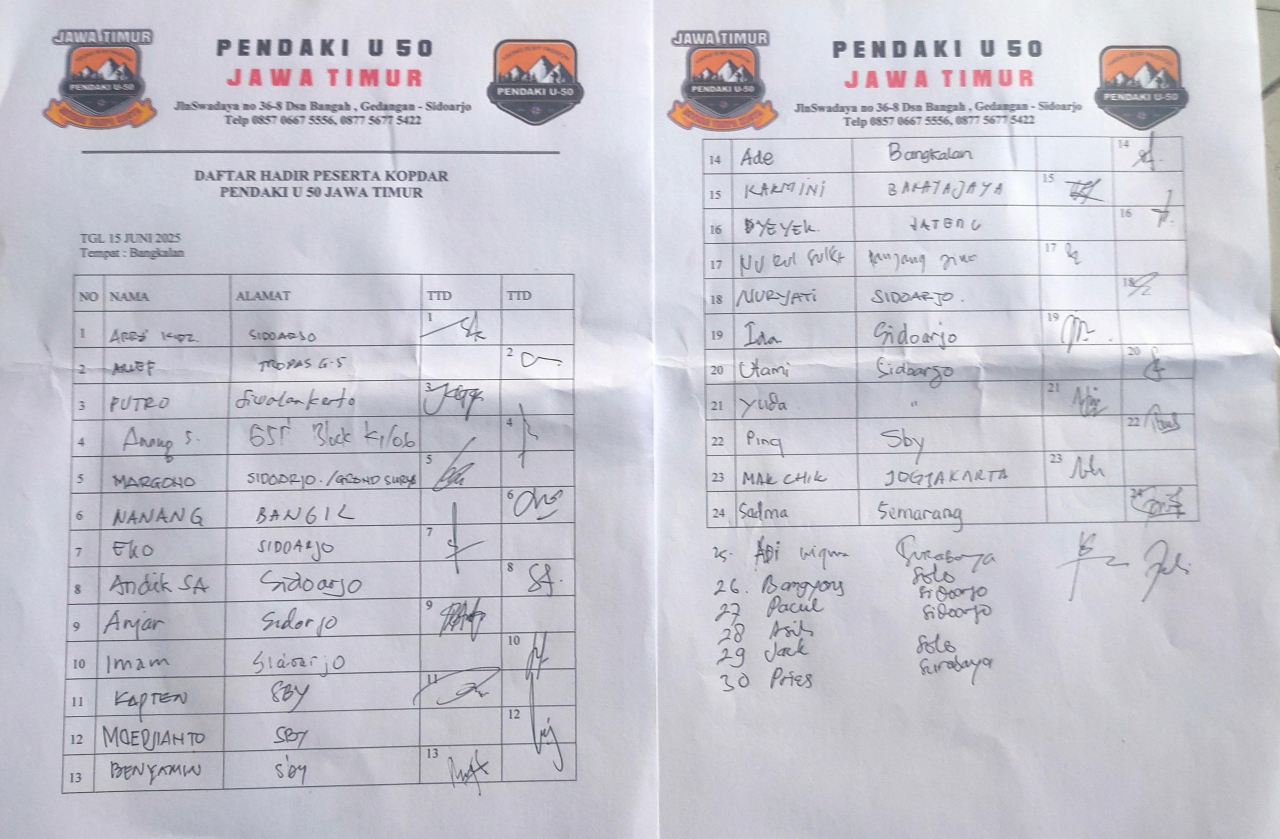 JAWA TIMUR
PENDAKI U-50
PENDAKI U 50
JAWA TIMUR
JlnSwadaya no 36-8 Dsn Bangah , Gedangan - Sidoarjo
Telp 0857 0667 5556, 0877 5677 5422
PENDAKI U-50
DAFTAR HADIR PESERTA KOPDAR
PENDAKI U 50 JAWA TIMUR
TGL 15 JUNI 2025
Tempat : Bangkalan
NO NAMA ALAMAT TTD TTD
1 SIDOARJO 1
2 ARIEF TROPAS G-5 2
3 PUTRO Siwalankerto 3
4 Anang S. GSI Block K1/06 4
5 MARGONO SIDOARJO./GRAND SURYA 5
6 NANANG BANGIL 6
7 EKO SIDOARJO 7
8 Andik SA Sidoarjo 8
9 Anjar Sidorjo 9
10 Imam Sidoarjo 10
11 KAPTEN SBY 11
12 MOERJIANTO SBY 12
13 BENYAMIN Sby 13
JAWA TIMUR
PENDAKI U-50
PENDAKI U 50
JAWA TIMUR
JlnSwadaya no 36-8 Dsn Bangah , Gedangan - Sidoarjo
Telp 0857 0667 5556, 0877 5677 5422
PENDAKI U-50
14 Ade Bangkalan 14
15 KARMINI 15
16 YEYEK JATENG 16
17 NURUL 17
18 NURYATI SIDOARJO. 18
19 Ida Sidoarjo 19
20 Utami Sidoarjo 20
21 Yuda " 21
22 Ping Sby 22
23 MAK CHIK JOGJAKARTA 23
24 Sadma Semarang 24
25. ADI Surabaya
26. Bangyons Solo
27 Pacul Sidoarjo
28 Asih Sidoarjo
29 Jack Solo
30 Pries Surabaya